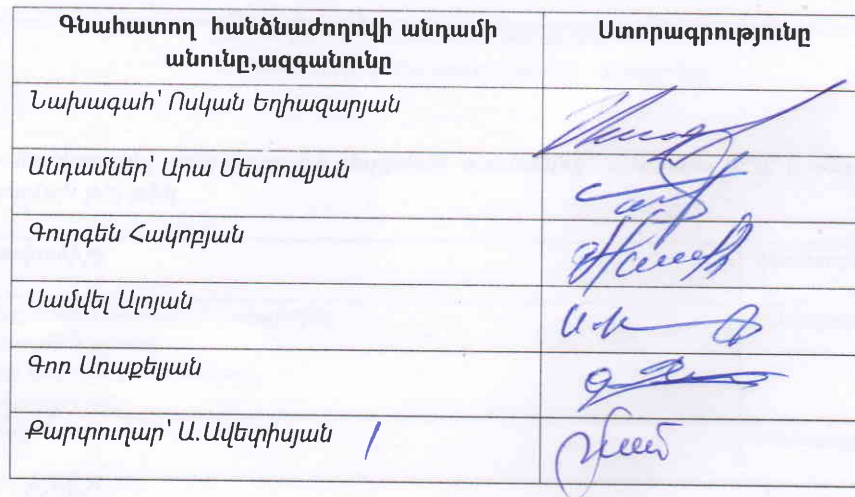 Գնահատող հանձնաժողովի անդամի
անունը,ազգանունը
Ստորագրությունը
Նախագահ՝ Ոսկան Եղիազարյան
Անդամներ՝ Արա Մեսրոպյան
Գուրգեն Հակոբյան
Սամվել Ալոյան
Գոռ Առաքելյան
Քարտուղար՝ Ա.Ավետիսյան